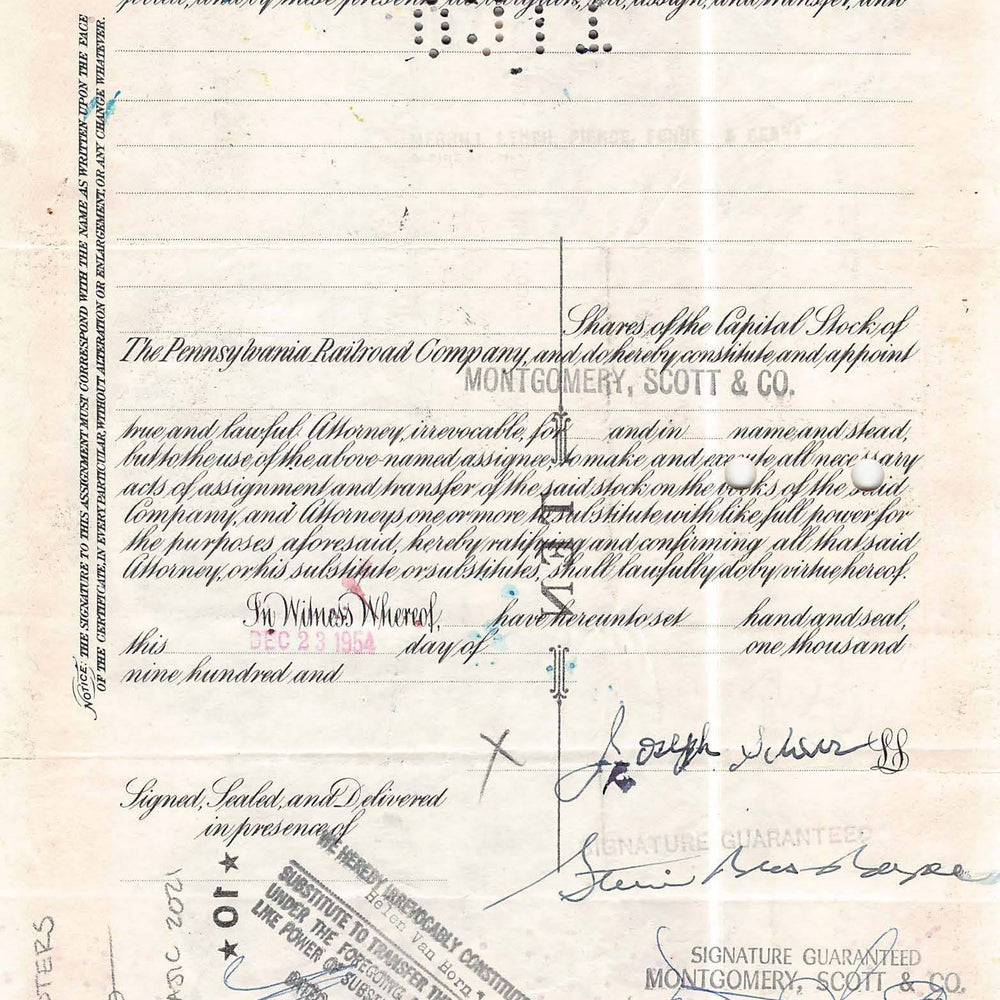 NOTICE: THE SIGNATURE TO THIS ASSIGNMENT MUST CORRESPOND WITH THE NAME AS WRITTEN UPON THE FACE
OF THE CERTIFICATE, IN EVERY PARTICULAR, WITHOUT ALTERATION OR ENLARGEMENT, OR ANY CHANGE WHATEVER.
assign, and transfer, unto
MERRILL LYNCH, PIERCE, FENNER & BEANE
Shares of the Capital Stock of
The Pennsylvania Railroad Company, and do hereby constitute and appoint
MONTGOMERY, SCOTT & CO.
true and lawful Attorney, irrevocable, for and in name and stead,
but to the use of the above-named assignee, to make and execute all necessary
acts of assignment and transfer of the said stock on the books of the said
Company, and Attorneys, one or more to substitute with like full power for
the purposes aforesaid, hereby ratifying and confirming all that said
Attorney, or his substitute or substitutes, shall lawfully do by virtue hereof.
In Witness Whereof, have hereunto set hand and seal,
this DEC 23 1954 day of one thousand
nine hundred and
PENN
X Joseph LS
Signed, Sealed, and Delivered
in presence of
SIGNATURE GUARANTEED
WE HEREBY IRREVOCABLY CONSTITUTE
Helen Van Horn
SUBSTITUTE TO TRANSFER THE
UNDER THE FOREGOING
LIKE POWER OF SUBS
DATED
★ 10 ★
2021
STERS
SIGNATURE GUARANTEED
MONTGOMERY, SCOTT & CO.